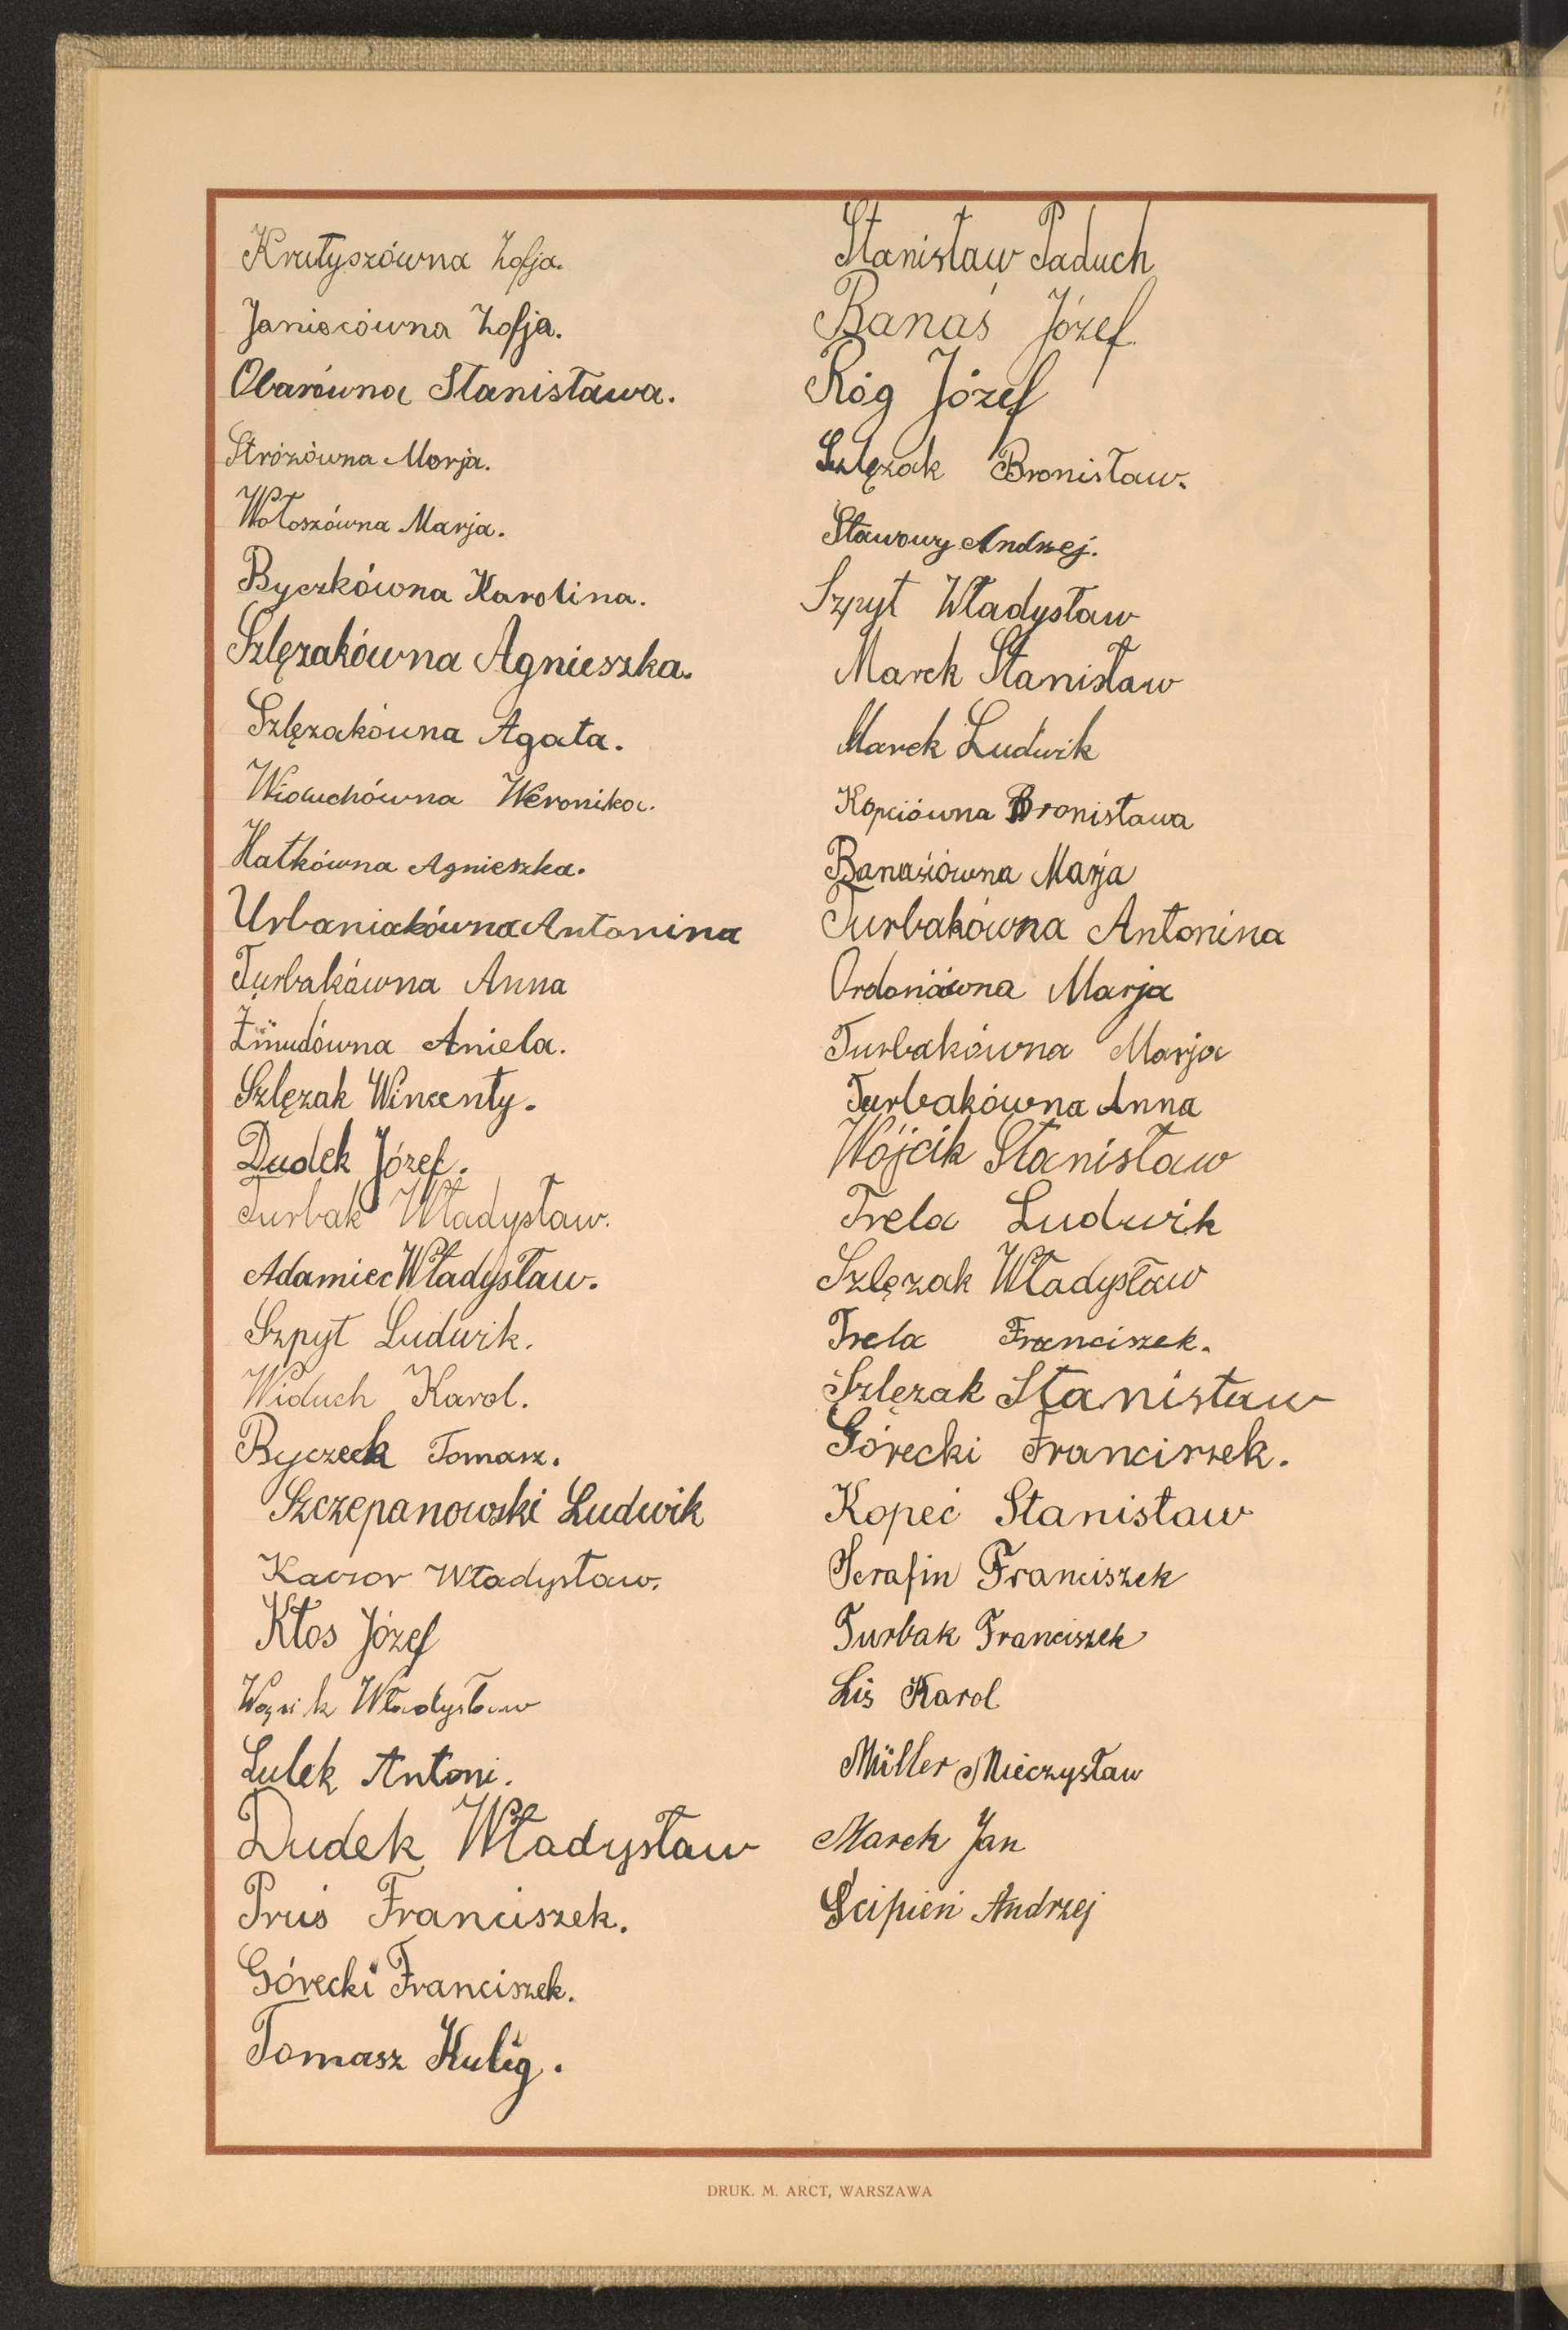 Krutyszówna Zofja.
Janiecówna Zofja.
Obarówna Stanisława.
Stróżówna Marja.
Wołoszówna Marja.
Byczkówna Karolina.
Szlęzakówna Agnieszka.
Szlęzakówna Agata.
Wiąduchówna Weronika.
Hatkówna Agnieszka.
Urbaniakówna Antonina
Turbakówna Anna
Żmudówna Aniela.
Szlęzak Wincenty.
Dudek Józef.
Turbak Władysław.
Adamiec Władysław.
Szpyt Ludwik.
Widuch Karol.
Byczek Tomasz.
Szczepanowski Ludwik
Kaczor Władysław.
Kłos Józef
Władysław
Lulek Antoni.
Dudek Władysław
Pruś Franciszek.
Górecki Franciszek.
Tomasz Kulig.
Stanisław Paduch
Banaś Józef.
Róg Józef
Szlęzak Bronisław.
Stawowy Andrzej.
Szpyt Władysław
Marek Stanisław
Marek Ludwik
Kopciówna Bronisława
Banasiówna Marja
Turbakówna Antonina
Marja
Turbakówna Marja
Turbakówna Anna
Wójcik Stanisław
Trela Ludwik
Szlęzak Władysław
Trela Franciszek.
Szlęzak Stanisław
Górecki Franciszek.
Kopeć Stanisław
Serafin Franciszek
Turbak Franciszek
Lis Karol
Müller Mieczysław
Marek Jan
Ścipień Andrzej
DRUK. M. ARCT, WARSZAWA